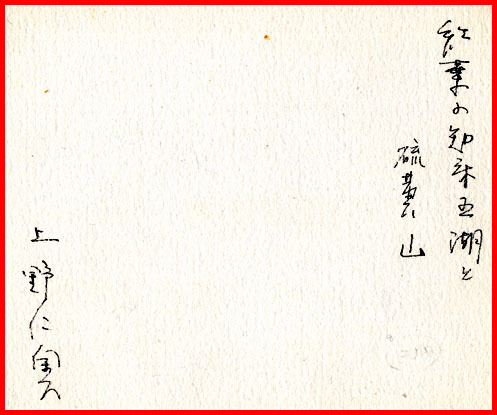 紅葉の知床五湖と
硫黄山
上野仁奥